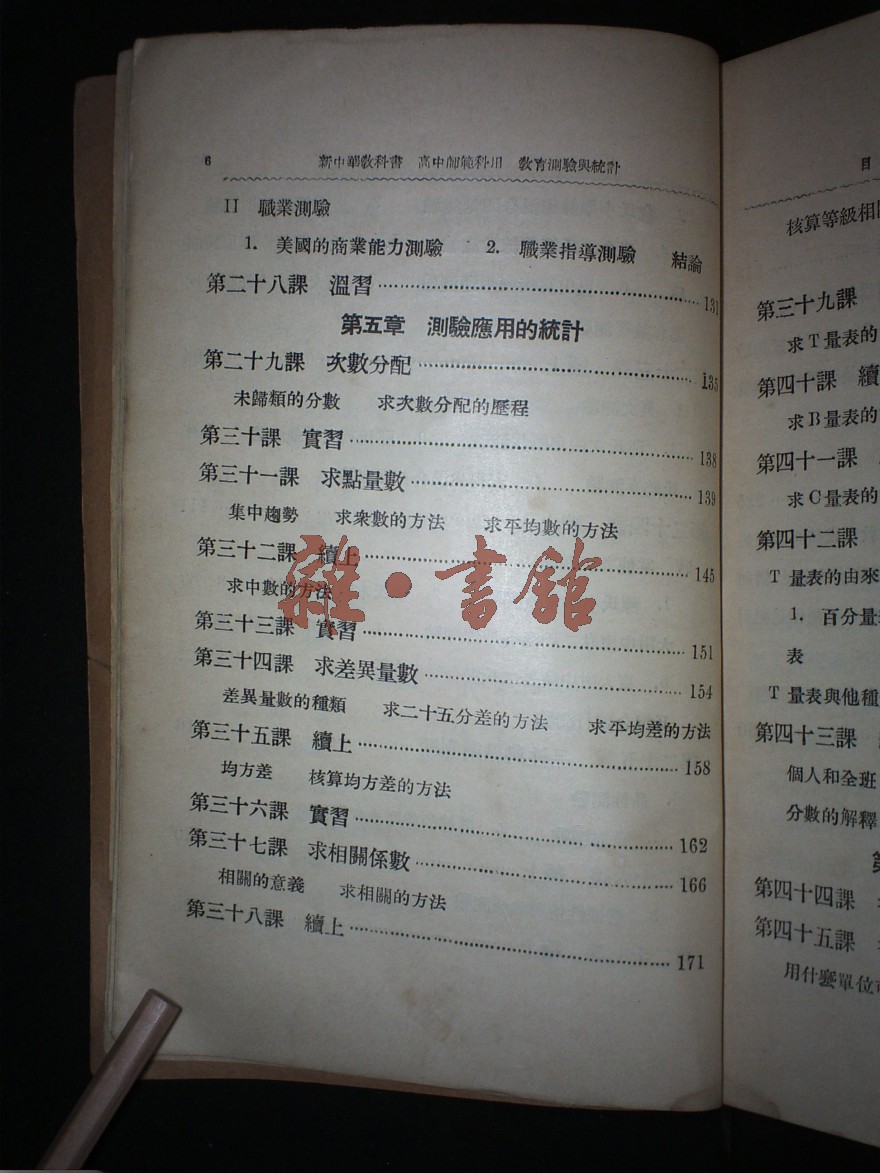 6 新中華教科書 高中師範科用 教育測驗與統計
II 職業測驗
1. 美國的商業能力測驗 2. 職業指導測驗 結論
第二十八課 溫習 131
第五章 測驗應用的統計
第二十九課 次數分配 135
未歸類的分數 求次數分配的歷程
第三十課 實習 138
第三十一課 求點量數 139
集中趨勢 求衆數的方法 求平均數的方法
第三十二課 續上 145
求中數的方法
第三十三課 實習 151
第三十四課 求差異量數 154
差異量數的種類 求二十五分差的方法 求平均差的方法
第三十五課 續上 158
均方差 核算均方差的方法
第三十六課 實習 162
第三十七課 求相關係數 166
相關的意義 求相關的方法
第三十八課 續上 171
雜·書館
目
核算等級相
第三十九課
求T量表的
第四十課 續
求B量表的
第四十一課
求C量表的
第四十二課
T 量表的由來
1. 百分量
表
T 量表與他種
第四十三課
個人和全班
分數的解釋
第四十四課
第四十五課
用什麼單位